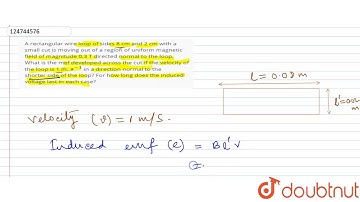 124744576
A rectangular wire loop of sides 8 cm and 2 cm with a
small cut is moving out of a region of uniform magnetic
field of magnitude 0.3 T directed normal to the loop.
What is the emf developed across the cut if the velocity of
the loop is 1 m. s⁻¹ in a direction normal to the
shorter side of the loop? For how long does the induced
voltage last in each case?
l = 0.08 m
l' = 0.02 m
velocity (v) = 1 m/s.
Induced emf (e) = B l' v
=
doubtnut